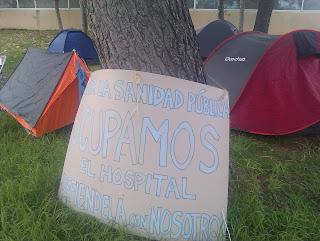 POR LA SANIDAD PÚBLICA
OCUPAMOS
EL HOSPITAL
DEFIENDELA CON NOSOTR
Quechua